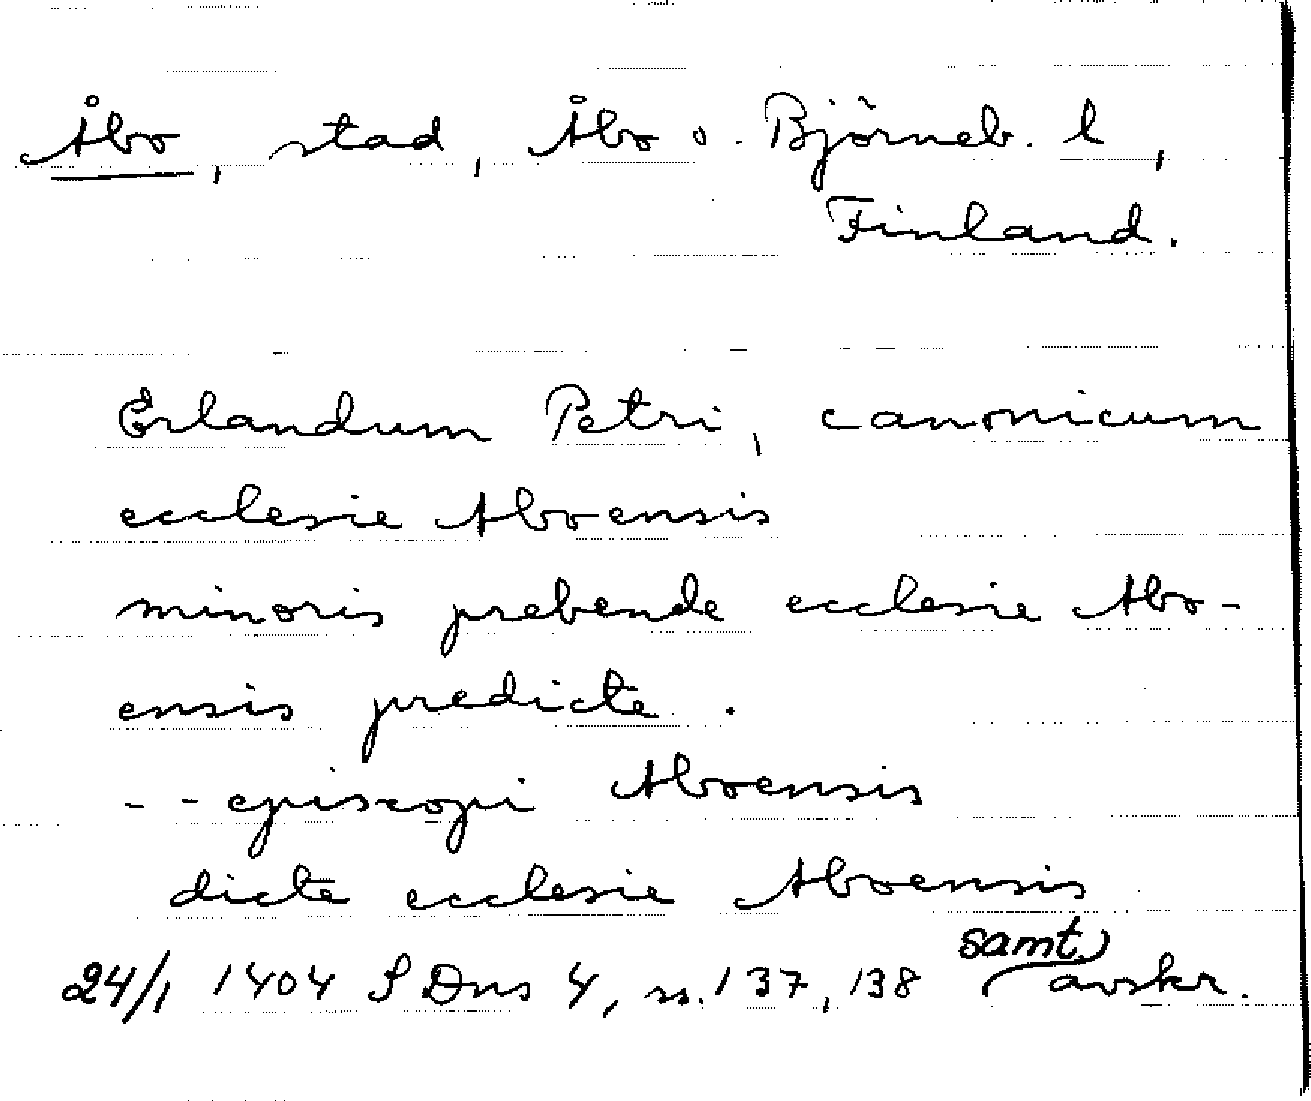 Åbo, stad, Åbo o. Björneb. l,
Finland.
Erlandum Petri, canonicum
ecclesie Aboensis
minoris prebende ecclesie Abo-
ensis predicte.
- - episcopi Aboensis
dicte ecclesie Aboensis
samt.)
24/1 1404 SDns 4, ss. 137, 138 avskr.